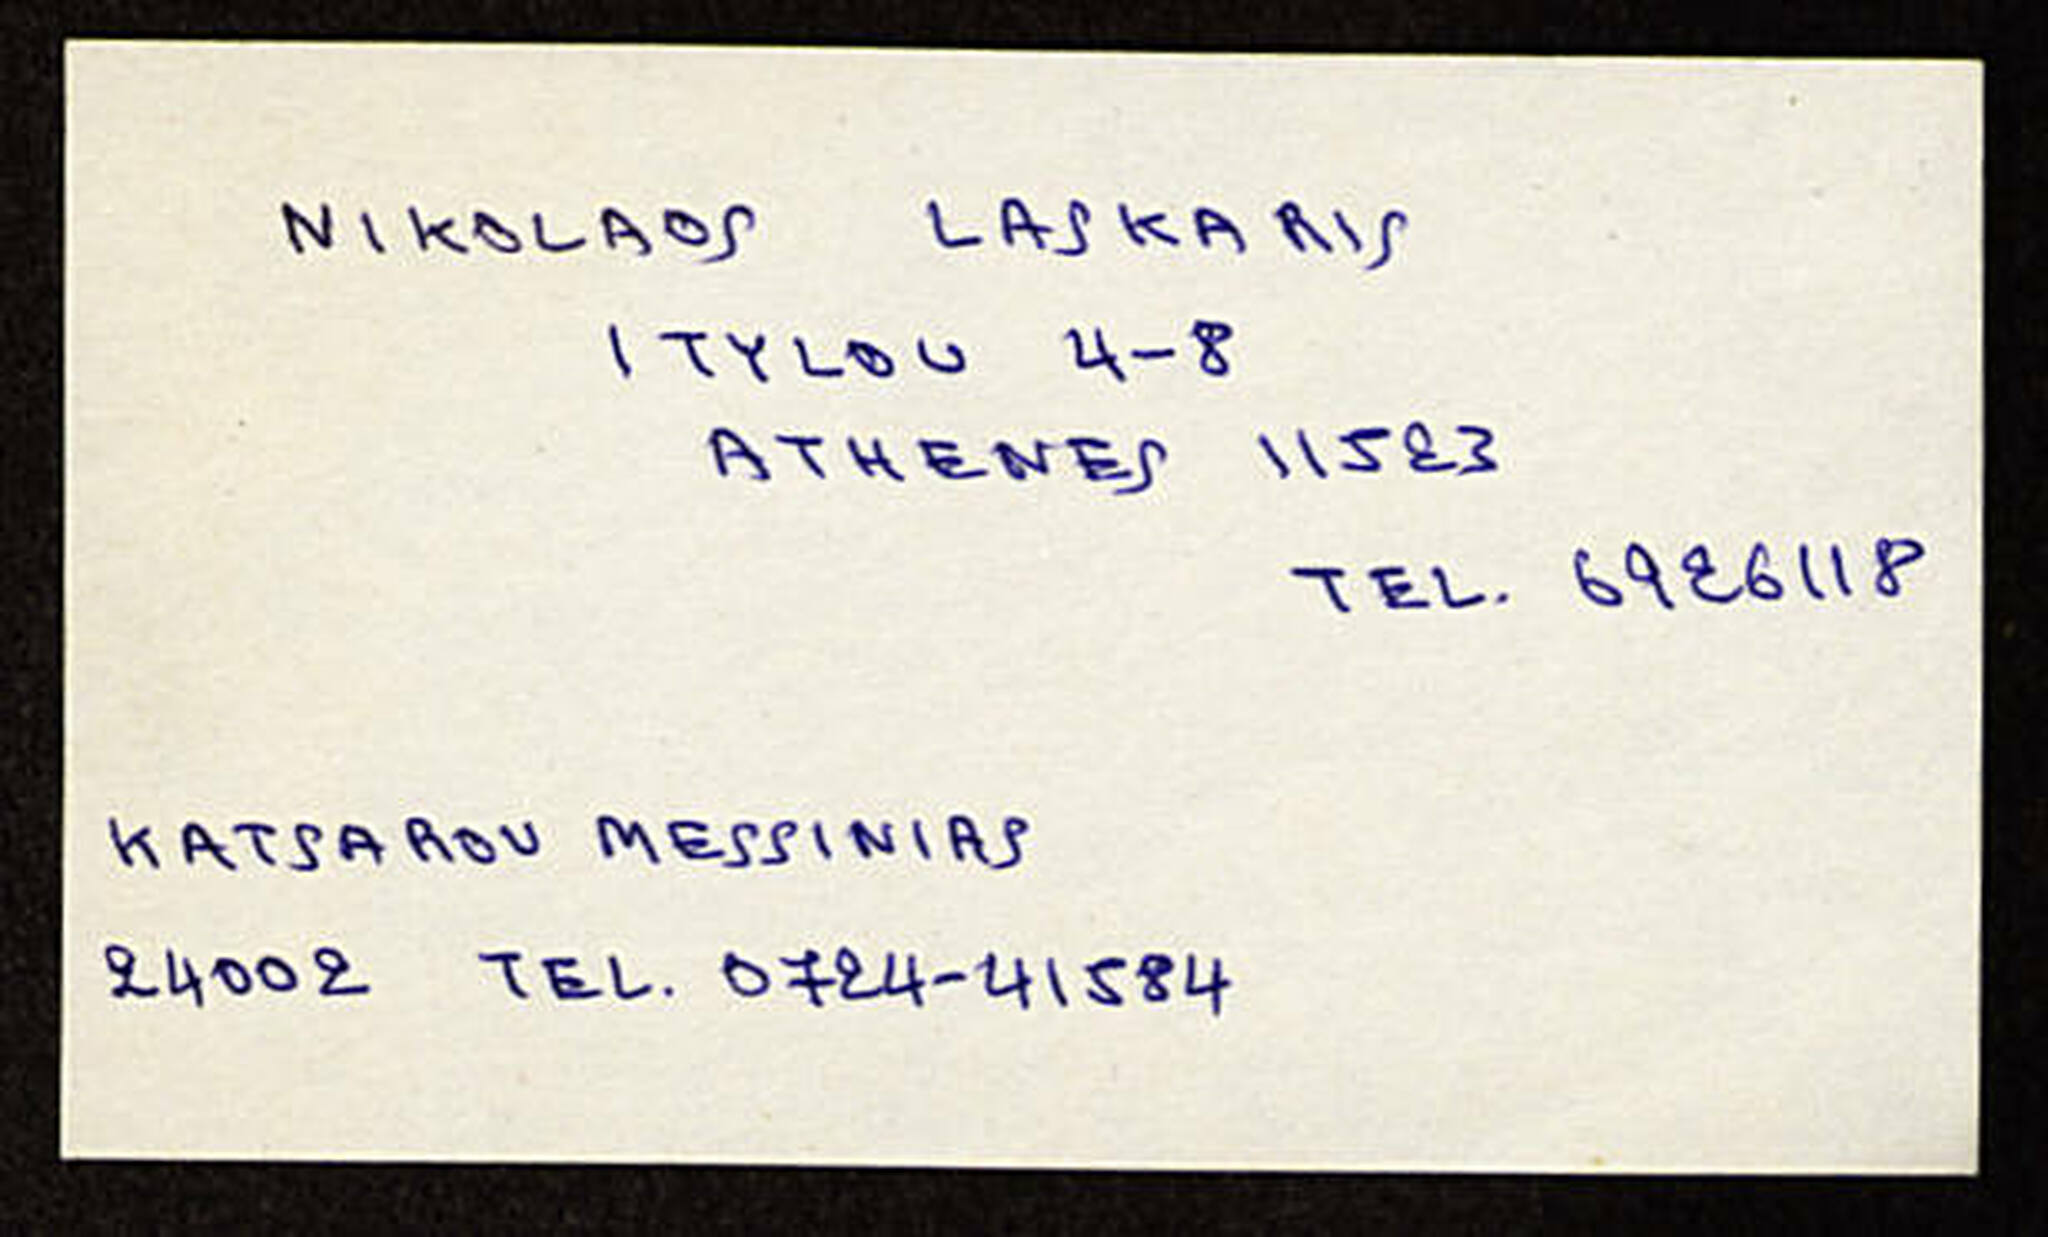 NIKOLAOS LASKARIS
ITYLOU 4-8
ATHENES 11523
TEL. 6926118
KATSAROU MESSINIAS
24002 TEL. 0724-41584